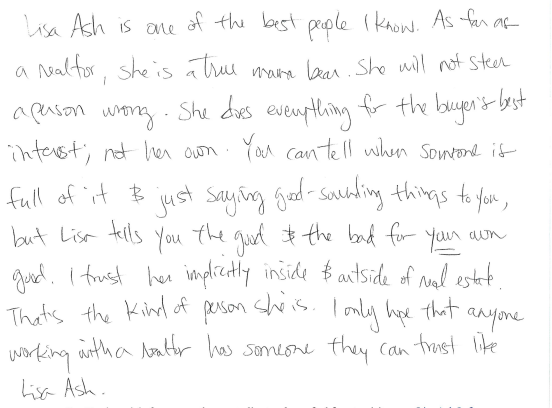 Lisa Ash is one of the best people I know. As far as
a realtor, she is a true mama bear. She will not steer
a person wrong. She does everything for the buyer's best
interest; not her own. You can tell when someone is
full of it & just saying good-sounding things to you,
but Lisa tells you the good & the bad for your own
good. I trust her implicitly inside & outside of real estate.
That's the kind of person she is. I only hope that anyone
working with a realtor has someone they can trust like
Lisa Ash.